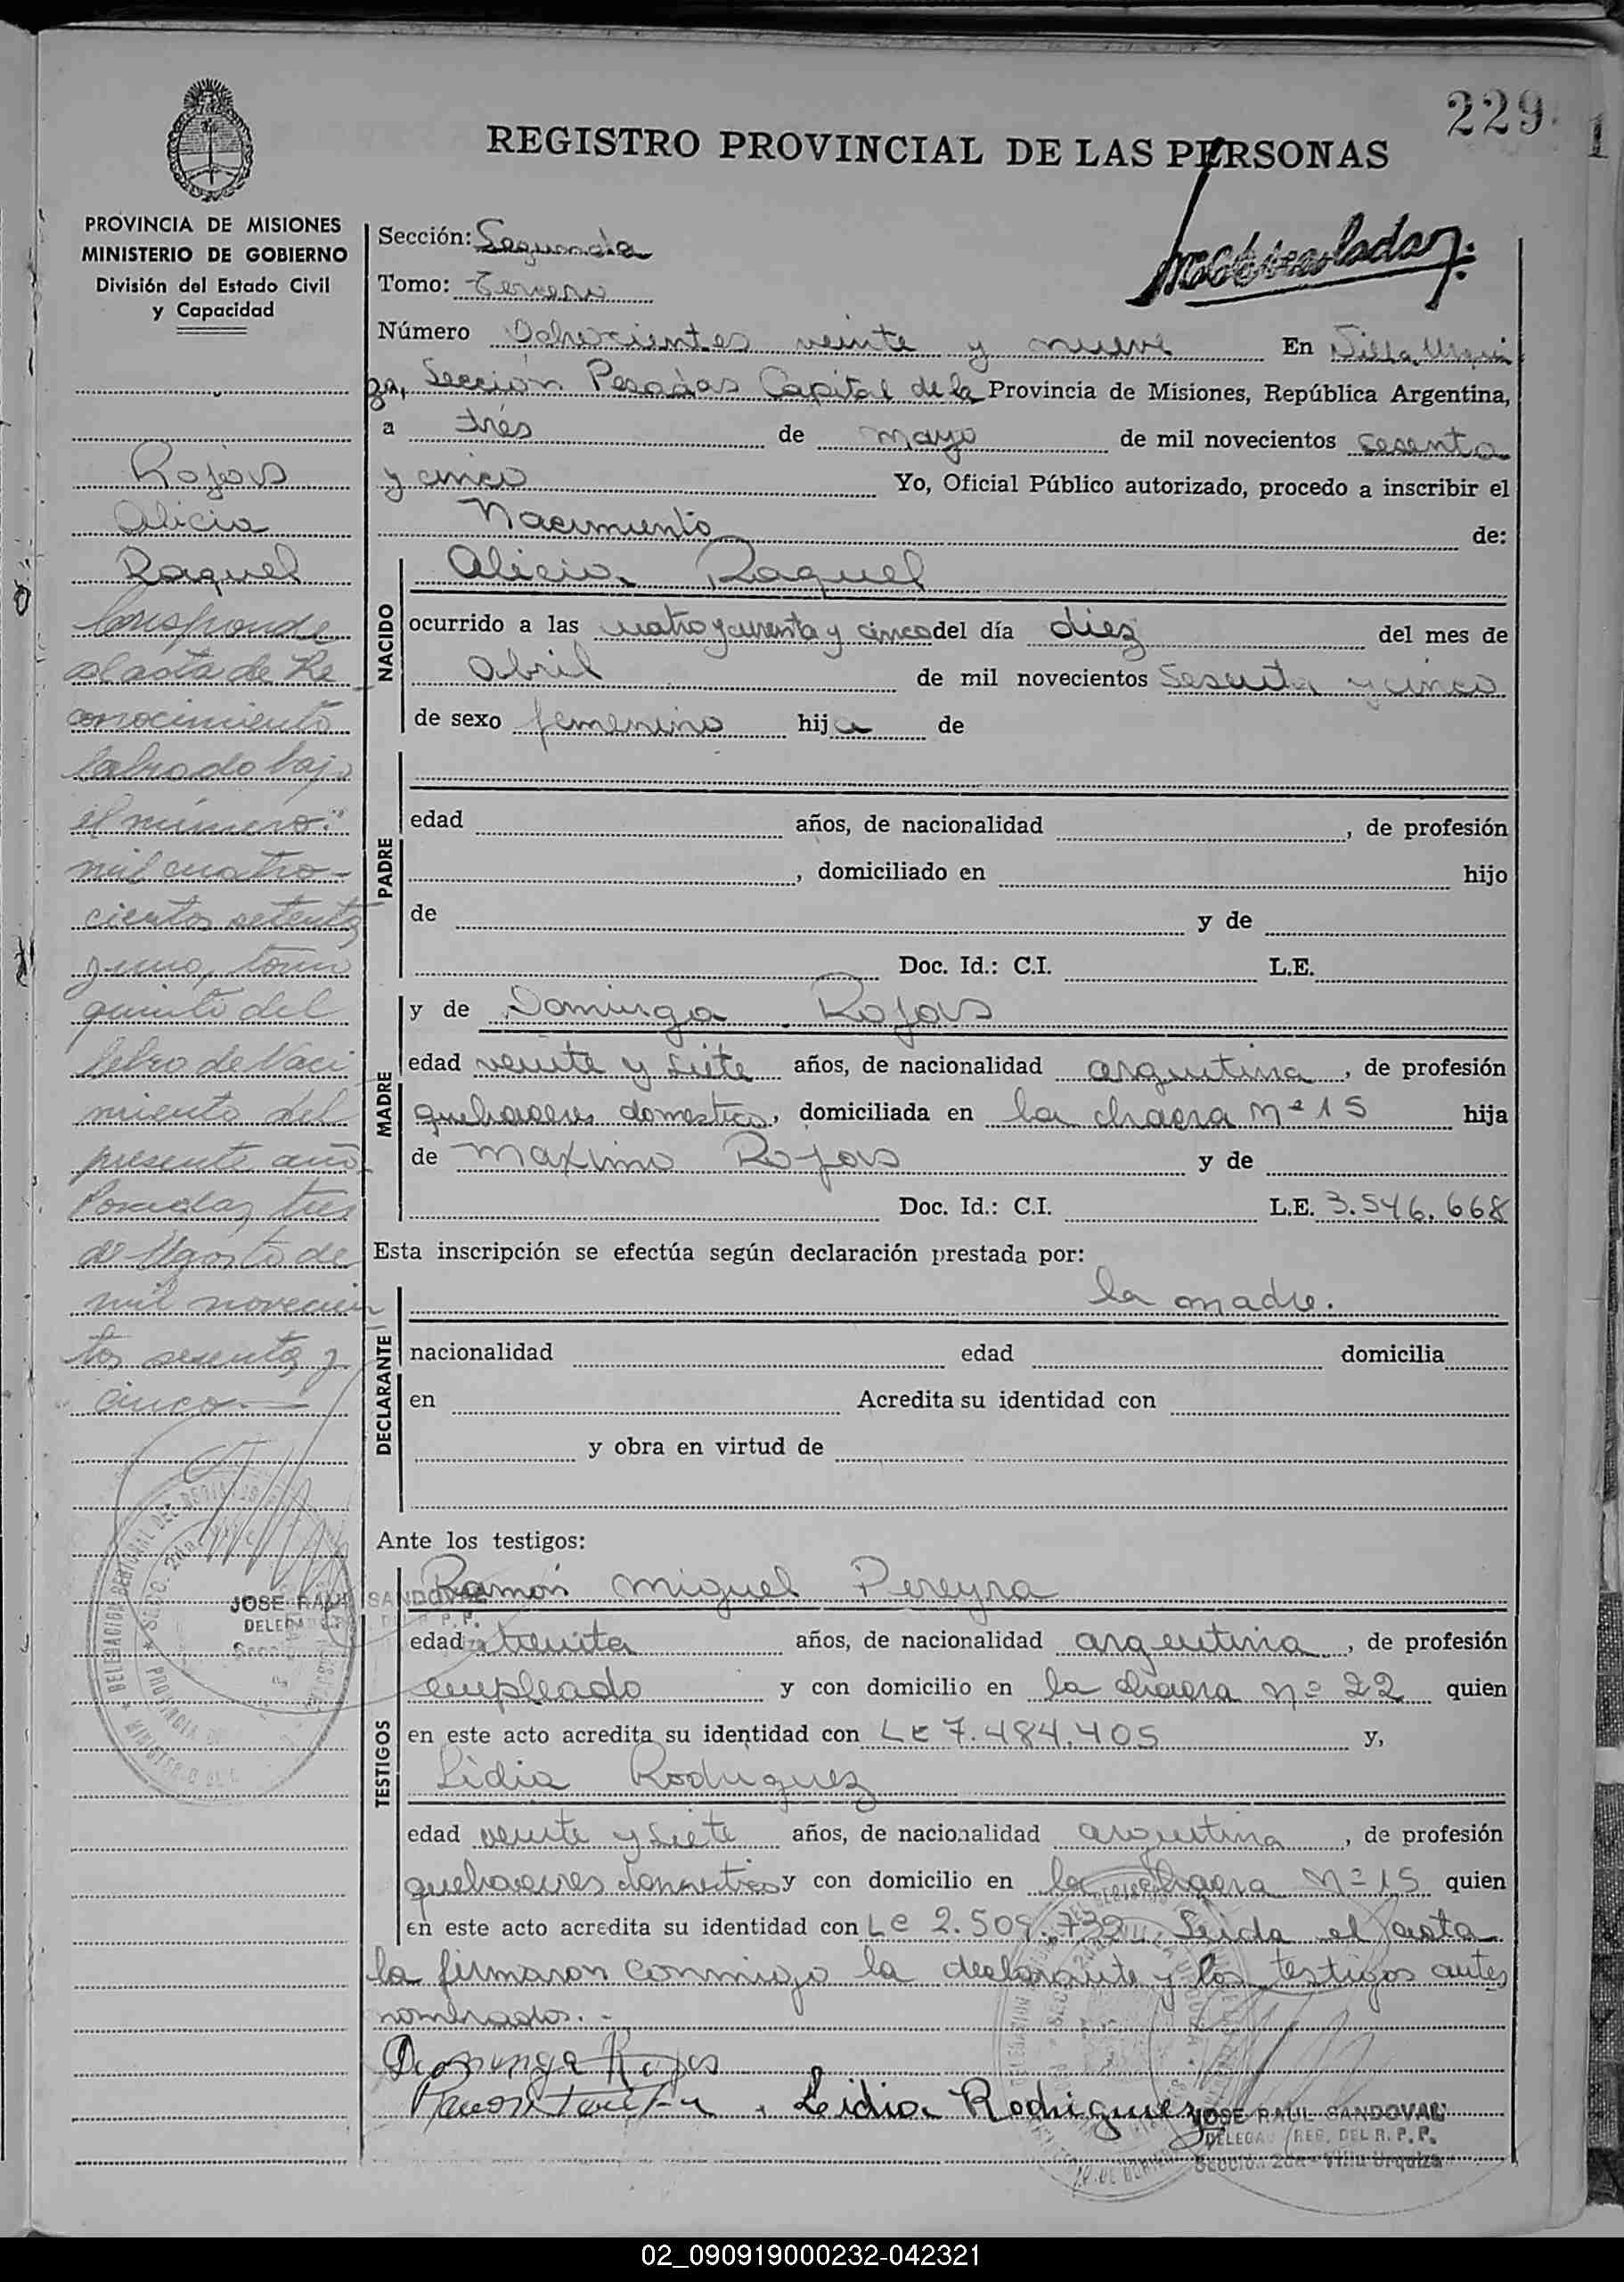 229
REGISTRO PROVINCIAL DE LAS PERSONAS
PROVINCIA DE MISIONES
MINISTERIO DE GOBIERNO
División del Estado Civil
y Capacidad
Sección: Segunda
Tomo: Tercero
Número Ochocientos veinte y nueve En Villa Urqui
za, Sección Posadas Capital de la Provincia de Misiones, República Argentina,
a trés de mayo de mil novecientos sesenta
y cinco Yo, Oficial Público autorizado, procedo a inscribir el
Nacimiento de:
NACIDO
Alicia Raquel
ocurrido a las cuatro y cuarenta y cinco del día diez del mes de
Abril de mil novecientos Sesenta y cinco
de sexo femenino hija de
PADRE
edad años, de nacionalidad , de profesión
, domiciliado en hijo
de y de
Doc. Id.: C.I. L.E.
MADRE
y de Dominga Rojas
edad veinte y siete años, de nacionalidad argentina, de profesión
quehaceres domesticos, domiciliada en la chacra Nº 15 hija
de Maximo Rojas y de
Doc. Id.: C.I. L.E. 3.546.668
Esta inscripción se efectúa según declaración prestada por:
DECLARANTE
la madre.
nacionalidad edad domicilia
en Acredita su identidad con
y obra en virtud de
Ante los testigos:
TESTIGOS
Ramón Miguel Pereyra
edad treinta años, de nacionalidad argentina, de profesión
empleado y con domicilio en la chacra nº 22 quien
en este acto acredita su identidad con LE 7.484.405 y,
Lidia Rodriguez
edad veinte y siete años, de nacionalidad argentina, de profesión
quehaceres domesticos y con domicilio en la chacra Nº 15 quien
en este acto acredita su identidad con Le 2.509.739 Leida el acta
la firmaron conmigo la declarante y los testigos antes
nombrados.-
Dominga Rojas
Lidia Rodriguez
JOSE RAUL SANDOVAL
DELEGADO REG. DEL R. P. P.
Sección 2da - Villa Urquiza
Rojas
Alicia
Raquel
Corresponde
al acta de Re
conocimiento
labrado bajo
el número:
mil cuatro-
cientos setenta
y uno, tomo
quinto del
libro de Naci
miento del
presente año
Posadas, tres
de Agosto de
mil novecien
tos sesenta y
cinco.—
JOSE RAUL SANDOVAL
02_090919000232-042321